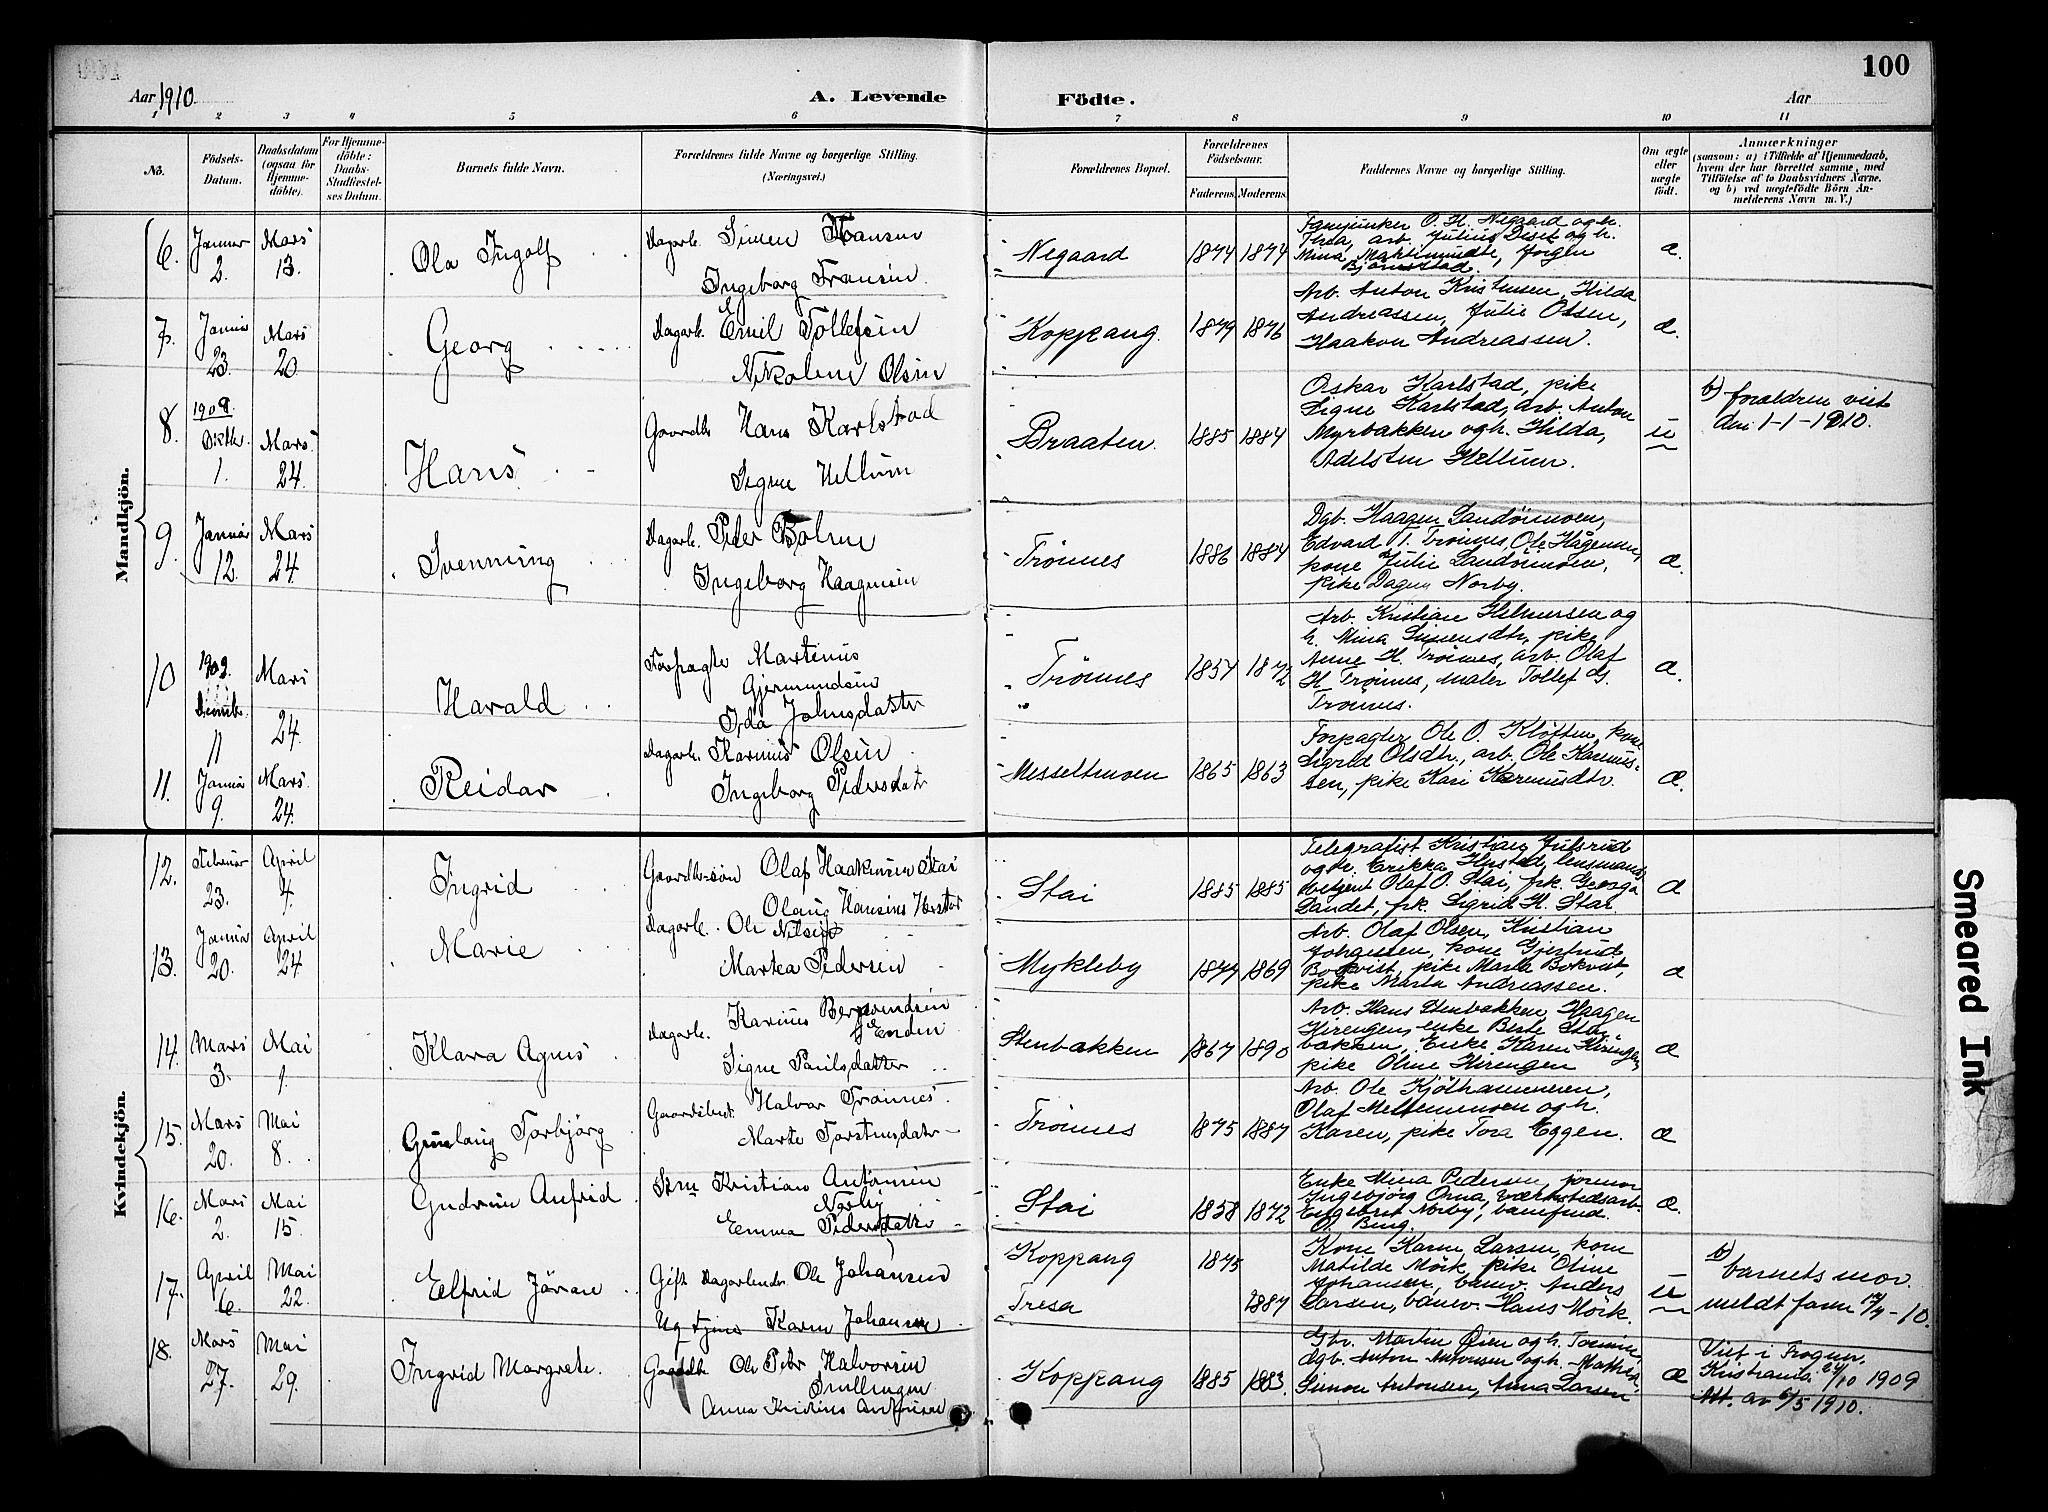 100
Aar 1910.
A. Levende
Födte.
Aar
1 2 3 4 5 6 7 8 9 10 11
No.
Födsels-Datum.
Daabsdatum (ogsaa for Hjemme-döbte).
For Hjemme-döbte: Daabs-Stadfæstel-ses Datum.
Barnets fulde Navn.
Forældrenes fulde Navne og borgerlige Stilling. (Næringsvei.)
Forældrenes Bopæl.
Forældrenes Födselsaar.
Faderens. Moderens.
Faddernes Navne og borgerlige Stilling.
Om ægte eller uægte födt.
Anmærkninger
(saasom: a) i Tilfælde af Hjemmedaab,
hvem der har forrettet samme, med
Tilföielse af to Daabsvidners Navne,
og b) ved uægtefödte Börn An-
melderens Navn m. V.)
Mandkjön.
6. Januar 2. Mars 13. Ola Ingolf
Dagarb. Simen Hansen
Ingeborg Fransen
Negaard 1874 1874
Fanejunker O. H. Negaard og h.
Thea, arb. Julius Deset og h.
Mina, Jørgen
Bjørnstad.
æ.
7. Januar 23. Mars 20. Georg
Dagarb. Emil Tollefsen
Nikoline Olsen
Koppang. 1879 1876
Arb. Anton Kristensen, Hilda
Andreassen, Julie Olsen,
Haakon Andreassen.
æ.
8. 1909. Oktbr. 1. Mars 24. Hans
Gaardbr. Hans Karlstad
Signe Hellum
Braaten. 1885 1884
Oskar Karlstad, pike
Signe Karlstad, arb. Anton
Myrbakken og h. Hilda,
Adelsten Hellum.
u
b) forældren viet
den 1-1-1910.
9. Januar 12. Mars 24 Svenning
Dagarb. Peder Bolme
Ingeborg Haagensen
Trönnes 1886 1884
Dgb. Haagen Sandönmoen,
Edvard T. Trönnes, Ole Hågensen,
kone Julie Sandönmoen,
pike Dagny Norby.
æ.
10 1909. Decmbr. 11 Mars 24. Harald
Forpagte Martinus
Gjermundsen
Ida Johnsdatter
Trönnes 1857 1872
Arb. Kristian Helmersen og
h. Mina Simensdtr, pike
Anne H. Trönnes, arb. Olaf
H. Trönnes, maler Tollef G.
Trönnes.
æ.
11. Januar 9. Mars. 24. Reidar
Dagarb. Karinus Olsen
Ingeborg Pedersdatr
Messeltmoen 1865 1863
Forpagter Ole O. Kløften, kone
Sigrid Olsdtr., arb. Ole Karinus-
sen, pike Kari Karinusdtr.
æ.
Kvindekjön.
12. Februar 23. April 4. Ingrid
Gaardbr.søn Olaf Haakensen Stai
Olaug Hansine
Stai 1885 1885
Telegrafist Kristian Jufsrud
og h. Erikka Husted, lensmans-
betjent Olaf O. Stai, frk. Georga
Sandet, frk. Sigrid H. Stai.
æ
13. Januar 20. April 24 Marie
Dagarb. Ole Nilsen
Martea Pedersen
Mykleby 1877 1869
Arb. Olaf Olsen, Kristian
Johansen, kone Gjertrude
Bokvist, pike Marta Bokvist,
pike Marta Andreassen.
æ
14. Mars 3. Mai 1. Klara Agnes
Dagarb. Karinus Bergsvendsen
Enden
Signe Paulsdatter
Stenbakken 1867 1890
Arb. Hans Stenbakken, Haagen
Hirengen, enke Berte Sten-
bakken, Enke Karen Hirengen,
pike Oline Hirengen
æ
15. Mars 20. Mai 8. Gunlaug Torbjörg
Gaardsbest. Halvor Trönnes
Marte Torstensdatr
Trönnes 1875 1887
Arb. Ole Kjölhammeren,
Olaf Meltemmoen og h.
Karen, pike Tora Eggen.
æ
16. Mars 2. Mai 15. Gudrun Anfrid
Kristian Antonsen
Norby
Emma Pedersdatr
Stai 1858 1872
Enke Mina Pedersen, jomor
Ingebjörg Orma, værkstedsarb.
Engebret Norby, banefuld.
O. Berg.
æ.
17. April 6. Mai 22. Elfrid Jöran
Gift Dagarbeider Ole Johansen
Ug tjene Karen Johansen
Koppang 1875
Tresa 1887
Kone Karen Larsen, kone
Matilde Mörk, pike Oline
Johansen, banev. Anders
Larsen, banev. Hans Mörk.
u
b)
barnets mor.
meldt faren 12/4-10.
18. Mars 27. Mai 29. Ingrid Margrete.
Gaardbr. Ole Peter Halvorsen
Snellingen
Anna Kristine Antonsen
Koppang 1885 1883.
Gbr. Martin Øien og h. Tomine,
dgb. Anton Antonsen og h. Mathild,
Simon Antonsen, Anna Larsen
æ
Viet i Frogner,
Kristiania 24/10 1909
Att. av 6/5 1910.
Smeared Ink